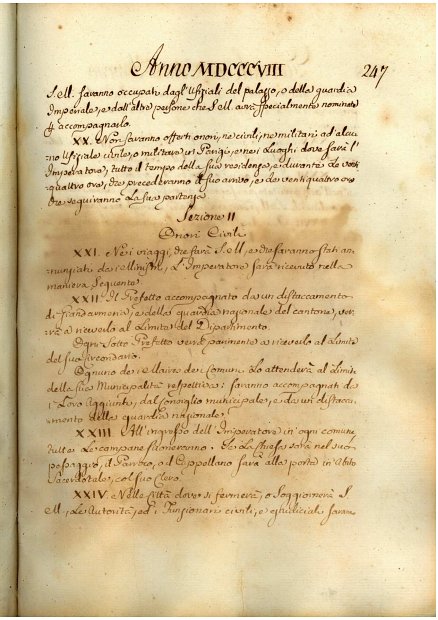 Anno MDCCCVIII 247
S. M. saranno occupati dagl'Ufiziali del palazzo, o della guardia
Imperiale, e dall'altre persone che S. M. avrà specialmente nominate
accompagnarlo.
XX. Non saranno offerti onori, ne civili, ne militari ad alcu-
no Ufiziale civile, o militare in Parigi, e nei Luoghi dove sarà l'
Imperatore, tutto il tempo della sua residenza, e durante le venti
quattro ore, che precederanno il suo arrivo, e le ventiquattro ore
che seguiranno la sua partenza
Sezione II
Onori Civili
XXI. Nei viaggi, che farà S. M., e che saranno stati an-
nunziati dai Ministri, L'Imperatore sarà ricevuto nella
maniera seguente.
XXII. Il Prefetto accompagnato da un distaccamento
di giandarmeria, e della guardia nazionale del cantone, ver-
rà a riceverlo al Limite del Dipartimento.
Ogni Sotto Prefetto verrà parimente a riceverlo al Limite
del suo Circondario.
Ognuno dei Maires dei Comuni lo attenderà al Limite
della sua Municipalità respettiva: saranno accompagnati da
i Loro Aggiunti, dal Consiglio municipale, e da un distacca-
mento della guardia nazionale.
XXIII. All'ingresso dell'Imperatore in ogni comune
tutte le campane suoneranno: Se la Chiesa sarà nel suo
passaggio, il Parroco, o il Cappellano sarà alla porta in Abito
Sacerdotale, col suo Clero.
XXIV. Nelle Città dove si fermerà, o Soggiornerà S.
M., Le Autorità, ed i Funzionari civili, e giudiciali saran-